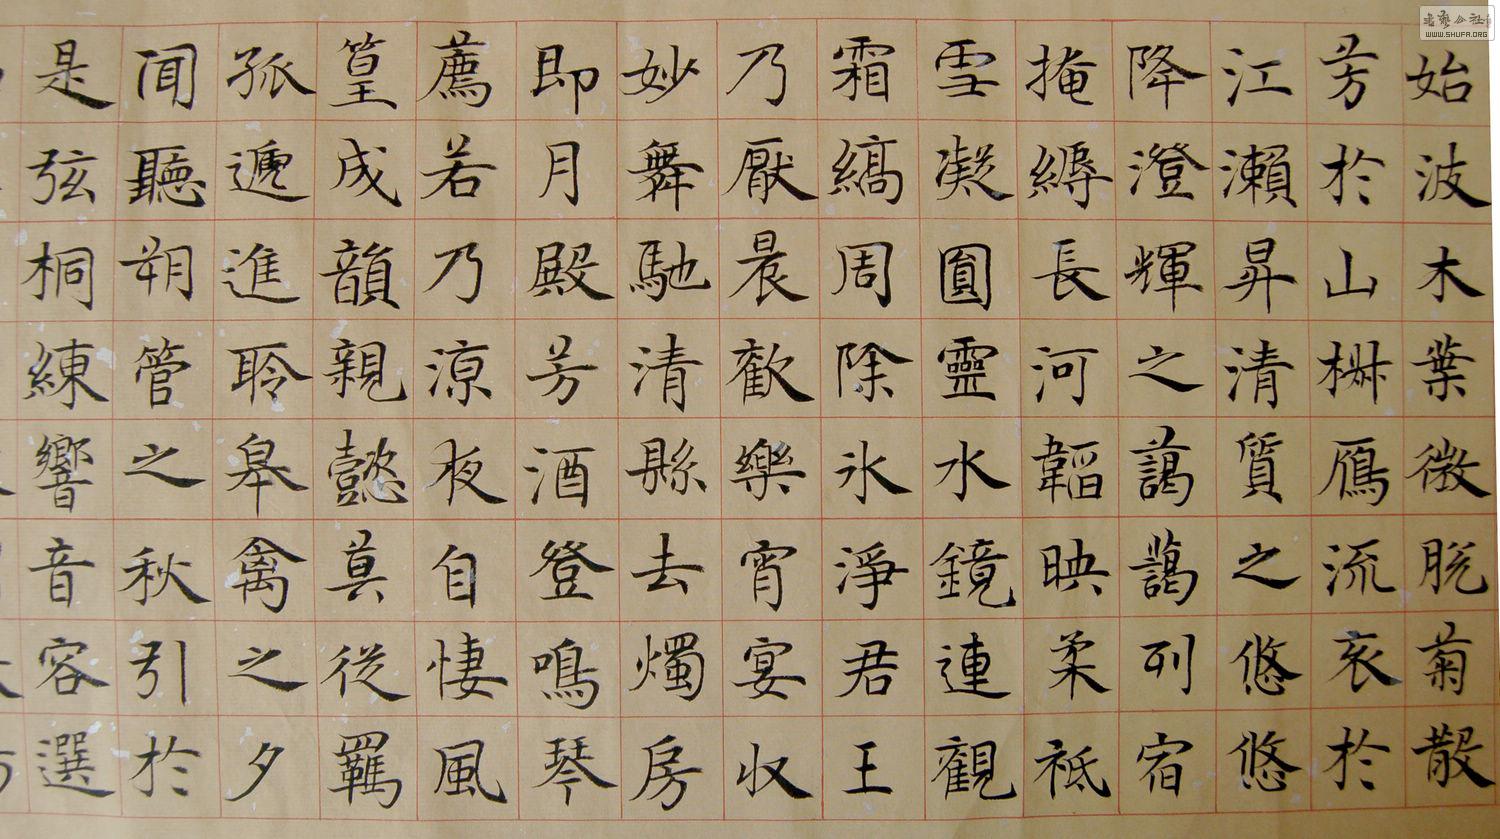 始波木葉微脫菊散
芳於山椒鴈流哀於
江瀨昇清質之悠悠
降澄輝之藹藹列宿
掩縟長河韜映柔祇
雪凝圓靈水鏡連觀
霜縞周除氷淨君王
乃厭晨歡樂宵宴收
妙舞馳清縣去燭房
即月殿芳酒登鳴琴
薦若乃涼夜自悽風
篁成韻親懿莫從羈
孤遞進聆皋禽之夕
聞聽朔管之秋引於
是弦桐練響音容選
書藝公社
WWW.SHUFA.ORG